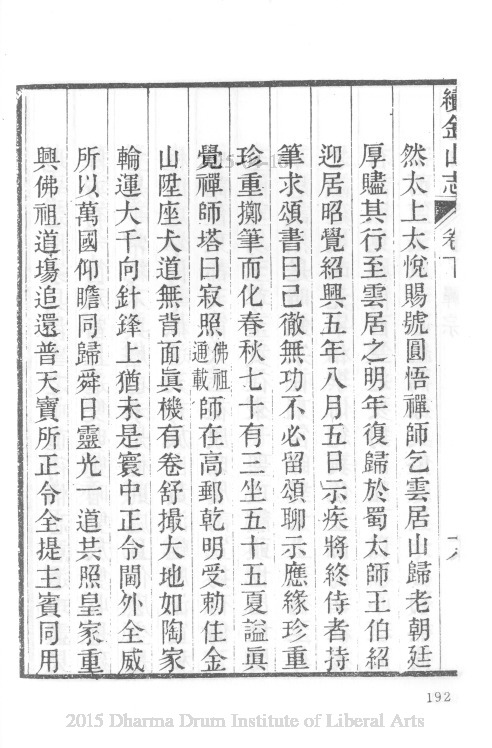 續金山志
卷下
然太上太悅賜號圓悟禪師乞雲居山歸老朝廷
厚賮其行至雲居之明年復歸於蜀太師王伯紹
迎居昭覺紹興五年八月五日示疾將終侍者持
筆求頌書曰已徹無功不必留頌聊示應緣珍重
珍重擲筆而化春秋七十有三坐五十五夏謚眞
覺禪師塔曰寂照佛祖通載師在高郵乾明受勅住金
山陞座大道無背面眞機有卷舒撮大地如陶家
輪運大千向針鋒上猶未是寰中正令閫外全威
所以萬國仰瞻同歸舜日靈光一道共照皇家重
興佛祖道塲追還普天寶所正令全提主賓同用
192
2015 Dharma Drum Institute of Liberal Arts